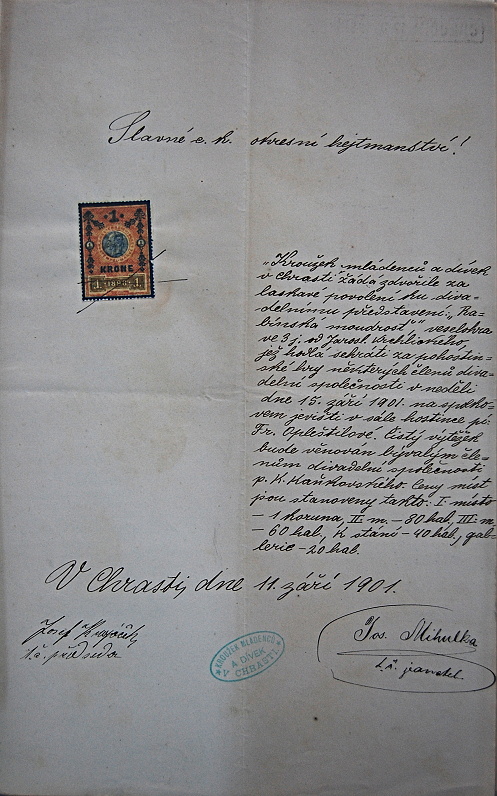 Slavné c. k. okresní hejtmanství!
1
KRONE
1 1898 1
„Kroužek mládenců a dívek
v Chrasti žádá zdvořile za
laskavé povolení ku diva-
delnímu představení: „Ra-
bínská moudrost", veselohra
ve 3 j. od Jarosl. Vrchlického,
jež hodlá sehráti za pohostin-
ské hry některých členů diva-
delní společnosti v neděli
dne 15. září 1901. na spolko-
vém jevišti v sále hostince pí.
Fr. Opleštilové. Čistý výtěžek
bude věnován bývalým čle-
nům divadelní společnosti
p. K. Kaňkovského. Ceny míst
jsou stanoveny takto: I. místo
- 1 koruna, II. m. - 80 hal, III. m.
- 60 hal., K stání - 40 hal., gal-
lerie - 20 hal.
V Chrasti, dne 11. září 1901.
Josef
t. č. předseda
KROUŽEK MLÁDENCŮ
A DÍVEK
V CHRASTI
Jos. Mihulka
t. č. jednatel.